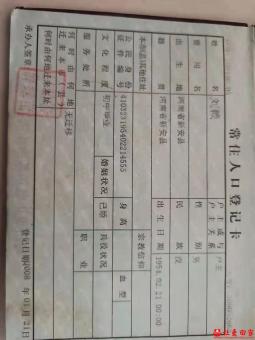 常住人口登记卡
姓名
户主或与户主关系
户主
曾用名
性别
男
出生地
河南省新安县
民族
汉
籍贯
河南省新安县
出生日期
1954.02.21 00:00
本市(县)其他住址
宗教信仰
公民身份证件编号
410323195402214555
身高
血型
文化程度
初中毕业
婚姻状况
已婚
兵役状况
服务处所
职业
何时由何地迁来本市(县)
无迁移
何时由何地迁来本址
承办人签章
登记日期:2008.01.21日